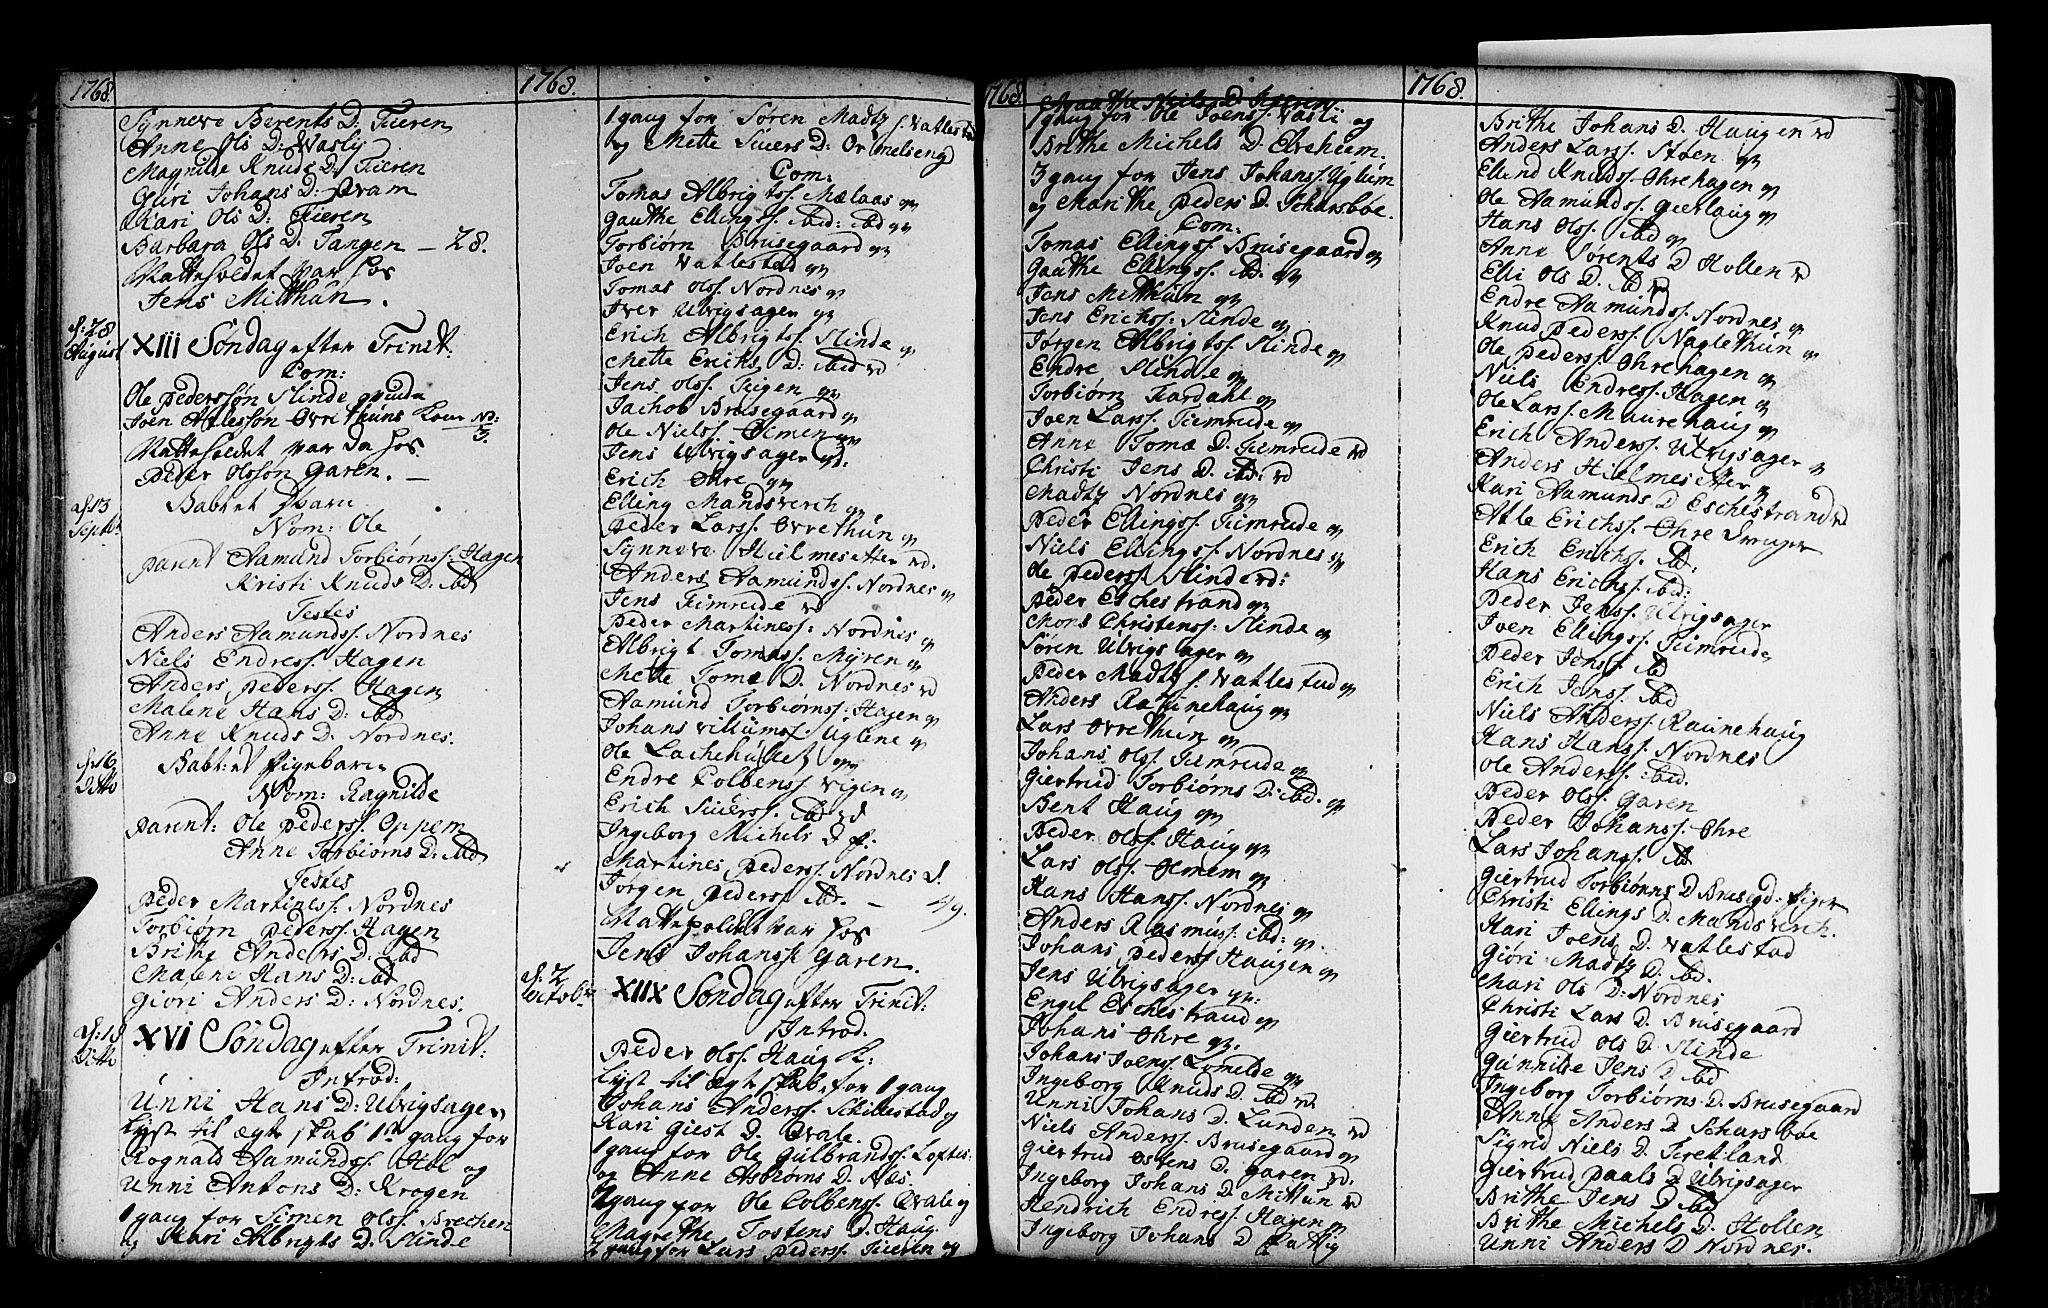 1768.
Synneve Berents D: Tieren
Anne Ols D: Wasly
Magnilde Knuds D: Tieren
Giri Johans D: Qvam
Kari Ols D: Tieren
Barbara Ols D. Tangen – 28.
Matteholdet var hos
Jens Mitthun.
d: 28 August XIII Søndag efter Trinit:
Com:
Ole Pedersøn Slinde
Joen Atlessøn Øvrethuns
3.
Matteholdet var da hos
Peder Olssøn Garen. –
d: 13 Septb:
Babt: et Barn
Nom: Ole
Parent Aamund Torbiørnss. Hagen
Kristi Knuds D: ibd
Testes
Anders Aamundss. Nordnes
Niels Endress. Hagen
Anders Pederss. Hagen
Malene Hans D: ibd
Anne Knuds D. Nordnes.
d: 16 Ditto
Babt: et Pigebarn
Nom: Ragnilde
Parent: Ole Pederss. Oppem
Anne Torbiørns D: ibd
Testes
Peder Martiness. Nordnes
Torbiørn Pederss. Hagen
Brithe Anders D: ibd
Malene Hans D: ibd
Giøri Anders D: Nordnes.
d: 18 Ditto XVI Søndag efter Trinit:
Introd:
Unni Hans D: Ulvigsager
Lyst til ægteskab 1ste gang for
Rognald Aamundss. Hol og
Unni Antons D: Krogen
1 gang for Simen Olss. Brechen
og Kari Albrigts D. Slinde
1768.
1 gang for Søren Madtz s. Vatlestad
og Mette Siuers D: Ormelseng
Com:
Tomas Albrigtss. Mælaas
Gauthe Ellingss. ibid: ibd
Torbiørn Brusegaard
Joen Vatlestad
Tomas Olss. Nordnes
Iver Ulvigsager
Erich Albrigts Slinde
Mette Erichs D: ibid
Jens Olss. Teigen
Jachob Brusegaard
Ole Nielss. Ølmen
Jens Ulvigsager
Erich Ohre
Elling Mandsverch
Peder Larss. Øvrethun
Synneve Hielmesetter
Anders Aamundss. Nordnes
Jens Timrede
Peder Martiness: Nordnes
Albrigt Tomass. Myren
Mette Tomæ D. Nordnes
Aamund Torbiørnss: Hagen
Johans Villumss. Uglene
Ole Lachehullet
Endre Colbenss. Vigen
Erich Siuerss. ibd
Ingeborg Michels D
Martines Pederss. Nordnes
Jørgen Pederss. ibd. – 49.
Matteholdet var hos
Jens Johanss. Garen.
d: 2 Octobr: XIIX Søndag efter Trinit:
Introd.
Peder Olss. Haug K:
Lyst til ægteskab for 1 gang
Johans Anderss. Schillestad og
Kari Giest D. Qvale.
1 gang for Ole Gulbrandss. Loftes:
og Anne Asbiørns D. Næs.
2 gang for Ole Colbenss. Qvale og
Magrethe Tostens D. Haug.
2 gang for Lars Pederss. Tieren og
1768.
Maathe Niels D Tieren.
1 gang for Ole Joenss. Vasli og
Brithe Michels D. Elveheim.
3 gang for Jens Johanss. Uglum
og Marithe Peders D. Scharsbøe.
Com:
Tomas Ellingss. Brusegaard
Gauthe Ellingss. ibd.
Jens Mitthun
Jens Erichss. Slinde
Jørgen Albrigtss. Slinde
Endre Slinde
Torbiørn Fardahl
Joen Larss. Timrude
Anne Tomæ D. Timrude
Christi Jens D. ibd:
Madtz Nordnes
Peder Ellingss. Timrude
Niels Ellingss. Nordnes
Ole Pederss. Slinde
Peder Eschestrand
Mons Christenss: Slinde
Søren Ulvigsager
Peder Madtz s. Vatlestad
Anders Raunehaug
Lars Øvrethun
Johans Olss. Timrude
Giertrud Torbiørns D: ibd.
Bent Haug
Peder Olss. Haug
Lars Olss. Olmem
Hans Hanss. Nordnes
Anders Rasmuss: ibd:
Johans Pederss. Haugen
Jens Ulvigsager
Engel Eschestrand
Johans Ohre
Johans Joenss. Lomelde
Ingeborg Knuds D. ibd
Unni Johans D. Lunden
Niels Anderss. Brusegaard
Giertrud Ostens D. Garen
Ingeborg Johans D Mittun
Hendrich Endress. Hagen
Ingeborg Johans D
1768.
Brithe Johans D. Haugen
Anders Larss. Støen
Ellend Knudss. Ohrehagen
Ole Aamundss. Gierlaug
Hans Olss. ibd
Anne Sørents D Hollen
Elli Ols D. ibd
Endre Aamundss. Nordnes
Knud Pederss. Naglethun
Ole Pederss. Ohrehagen
Niels Endress. Hagen
Ole Larss. Maurehaug
Erich Anderss. Ulvigsager
Anders Hielmesetter
Kari Aamunds D Eschestrand
Atle Erichss. Ohre Drenger
Erich Erichss. ibd:
Hans Erichss. ibd:
Peder Jenss. Ulvigsager
Joen Ellingss. Timrude
Peder Jenss. ibd
Erich Jenss. ibd
Niels Anderss. Raunehaug
Hans Hanss. Nordnes
Ole Anderss. ibd.
Peder Olss. Garen
Peder Johanss. Ohre
Lars Johanss. ib
Giertrud Torbiørns D Brusegd. Piger
Christi Ellings D. Mandsverch.
Kari Joens D. Vatlestad
Giøri Madtz D. ibd.
Mari Ols D: Nordnes
Christi Lars D. Brusegaard
Giertrud Ols D. Slinde
Gunnilde Jens D ibd
Ingeborg Torbiørns D. Brusegaard
Anne Anders D Scharsbøe
Sigrid Niels D. Fretland
Giertrud Paals D Ulvigsager
Brithe Jens D ibd
Brithe Michels D. Hollen
Unni Anders D Nordnes.